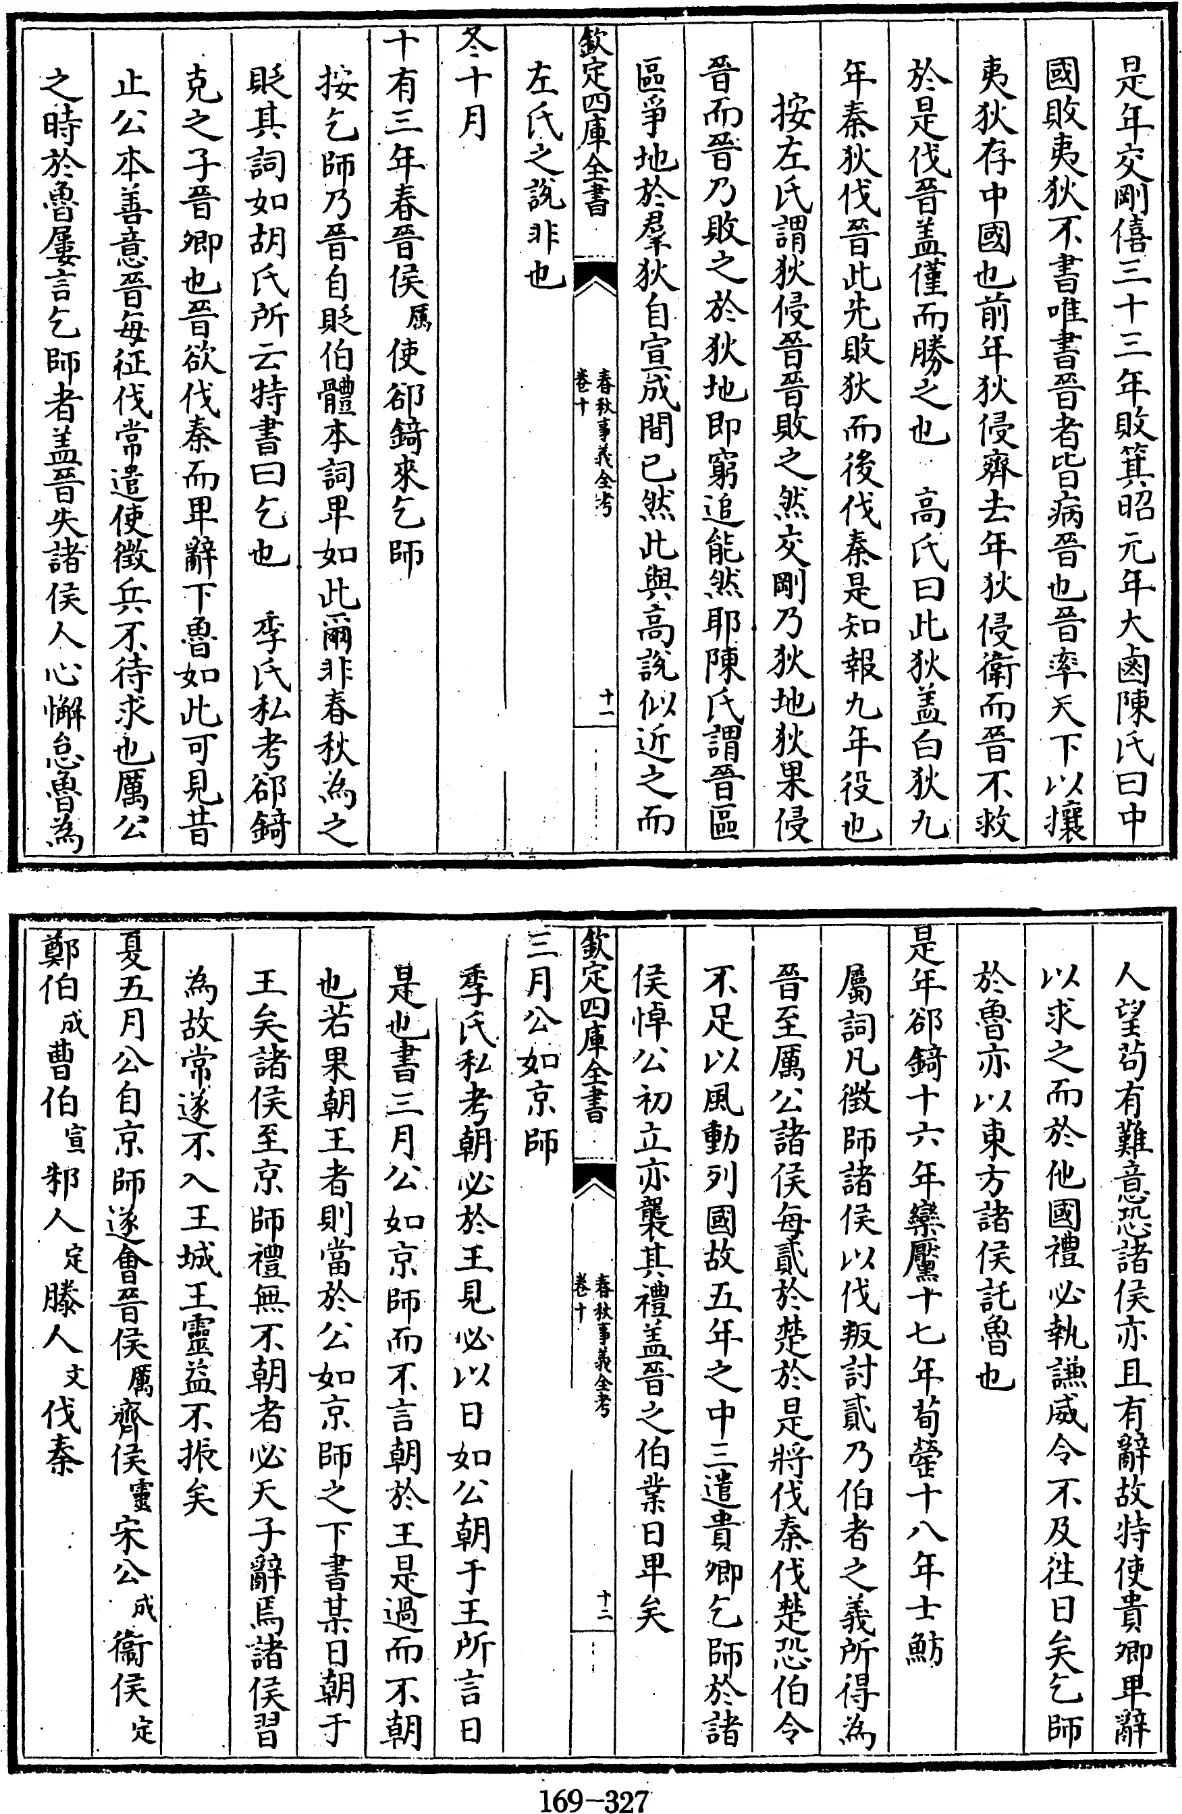 是年交剛僖三十三年敗箕昭元年大鹵陳氏曰中
國敗夷狄不書唯書晉者皆病晉也晉率天下以攘
夷狄存中國也前年狄侵齊去年狄侵衛而晉不救
於是伐晉盖僅而勝之也 高氏曰此狄盖白狄九
年秦狄伐晉此先敗狄而後伐秦是知報九年役也
按左氏謂狄侵晉晉敗之然交剛乃狄地狄果侵
晉而晉乃敗之於狄地即窮追能然耶陳氏謂晉區
區爭地於羣狄自宣成間已然此與高說似近之而
欽定四庫全書
春秋事義全考
卷十
十一
左氏之說非也
冬十月
十有三年春晉侯厲使郤錡來乞師
按乞師乃晉自貶伯體本詞卑如此爾非春秋為之
貶其詞如胡氏所云特書曰乞也 季氏私考郤錡
克之子晉卿也晉欲伐秦而卑辭下魯如此可見昔
止公本善意晉每征伐常遣使徵兵不待求也厲公
之時於魯屢言乞師者盖晉失諸侯人心懈怠魯為
人望苟有難意恐諸侯亦且有辭故特使貴卿卑辭
以求之而於他國禮必執謙威令不及徃日矣乞師
於魯亦以東方諸侯託魯也
是年郤錡十六年欒黶十七年荀罃十八年士魴
屬詞凡徵師諸侯以伐叛討貳乃伯者之義所得為
晉至厲公諸侯每貳於楚於是將伐秦伐楚恐伯令
不足以風動列國故五年之中三遣貴卿乞師於諸
侯悼公初立亦襲其禮盖晉之伯業日卑矣
欽定四庫全書
春秋事義全考
卷十
十二
三月公如京師
季氏私考朝必於王見必以日如公朝于王所言日
是也書三月公如京師而不言朝於王是過而不朝
也若果朝王者則當於公如京師之下書某日朝于
王矣諸侯至京師禮無不朝者必天子辭焉諸侯習
為故常遂不入王城王靈益不振矣
夏五月公自京師遂會晉侯厲齊侯靈宋公成衞侯定
鄭伯成曹伯宣邾人定滕人文伐秦
169-327